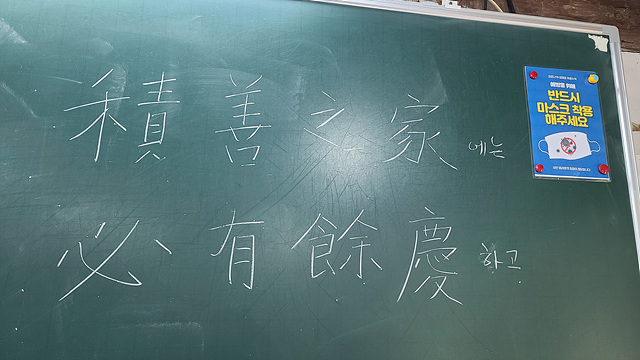 積善之家에는
必有餘慶하고
예방을 위해
반드시
마스크 착용
해주세요